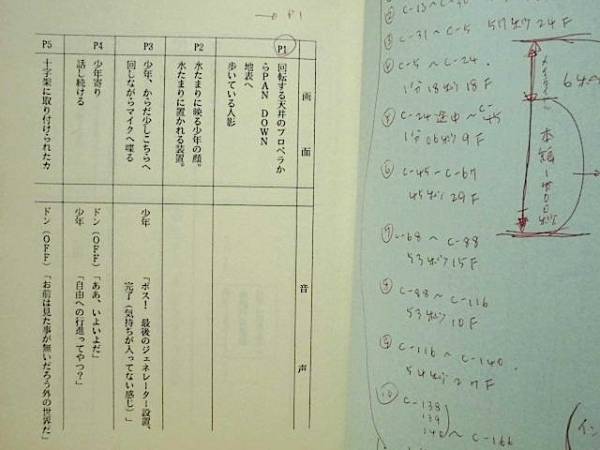 → P1
画面
音声
P1
回転する天井のプロペラか
らPAN DOWN
地表へ
歩いている人影
P2
水たまりに映る少年の顔。
水たまりに置かれる装置。
P3
少年、からだ少しこちらへ
回しながらマイクへ喋る
少年
「ボス!最後のジェネレーター設置、
完了(気持ちが入ってない感じ)」
P4
少年寄り
話し続ける
ドン(OFF)「ああ、いよいよだ」
少年
「自由への行進ってやつ?」
P5
十字架に取り付けられたカ
ドン(OFF)「お前は見た事が無いだろう外の世界だ」
③ C-31~C-5
57秒24F
C-5~C-24.
1分18秒18F
C-24途中~C-45
1分06秒9F
⑥ C-45~C-67
45秒29F
-68~C-88
53秒15F
C-88~C-116
53秒10F
C-116~C-140
54秒27F
⑩ C-138
139
140~C-166